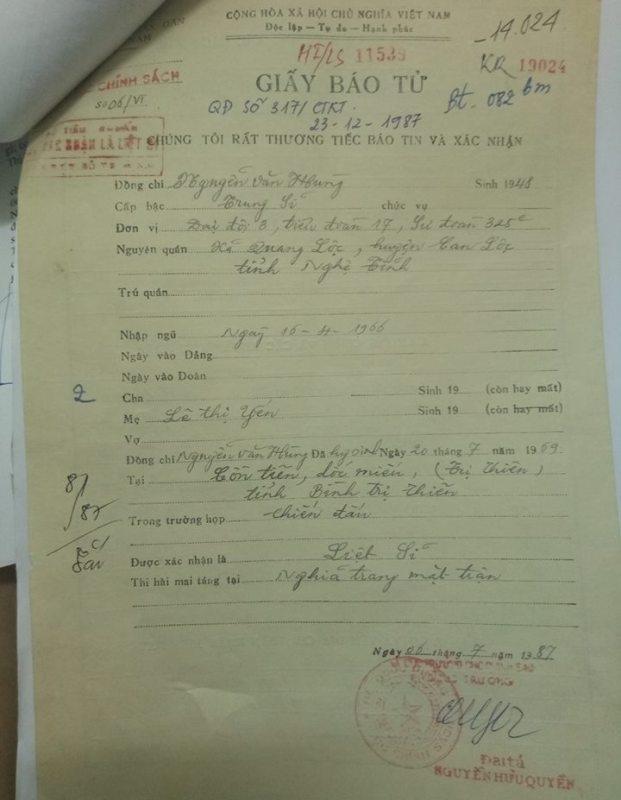 CỘNG HÒA XÃ HỘI CHỦ NGHĨA VIỆT NAM
Độc lập - Tự do - Hạnh phúc
14.024
HT/LS 11539
KR 19024
CHÍNH SÁCH
GIẤY BÁO TỬ
Số 06/VI
Bt. 082 bm
QĐ SỐ 317/CTKT.
23-12-1987
CHÚNG TÔI RẤT THƯƠNG TIẾC BÁO TIN VÀ XÁC NHẬN
Đồng chí Nguyễn Văn Hùng Sinh 1948
Cấp bậc Trung Sĩ chức vụ
Đơn vị Đại đội 3, tiểu đoàn 17, Sư đoàn 325c
Nguyên quán Xã Quang Lộc, huyện Can Lộc
tỉnh Nghệ Tĩnh
Trú quán
Nhập ngũ Ngày 16-4-1966
Ngày vào Đảng
Ngày vào Đoàn
2
Cha Sinh 19 (còn hay mất)
Mẹ Lê Thị Yến Sinh 19 (còn hay mất)
Vợ
Đồng chí Nguyễn Văn Hùng Đã hy sinh Ngày 20 tháng 7 năm 1969
Tại Cồn tiên, dốc miếu, (Trị Thiên)
tỉnh Bình Trị Thiên
81/87
Trong trường hợp chiến đấu
Được xác nhận là Liệt Sĩ
Thi hài mai táng tại Nghĩa trang mặt trận
Ngày 06 tháng 7 năm 1987
Đại tá
NGUYỄN HỮU QUYỀN